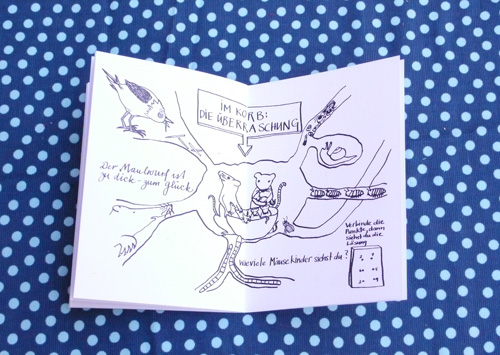 IM KORB:
DIE ÜBERRASCHUNG
Der Maulwurf ist
zu dick - zum glück.
Verbinde die
Punkte, dann
siehst du die
Lösung
wieviele Mäusekinder siehst du?